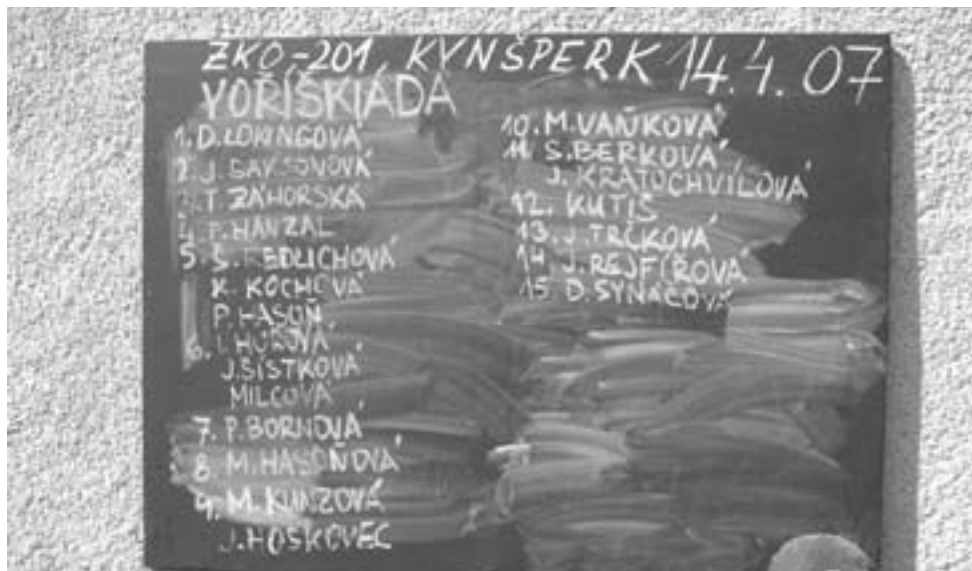 ZKO-201, KYNŠPERK 14.4.07
VOŘÍŠKIÁDA
1. D.
2. J.
T. ZÁHORSKÁ
4. P. HANZAL
5. Š. REDLICHOVÁ
K. KOCHOVÁ
P. HASOŇ
6.
J. ŠÍSTKOVÁ
MILCOVÁ
7. P. BORNOVÁ
8. M. HASOŇOVÁ
9. M. KUNZOVÁ
J. HOSKOVEC
10. M. VAŇKOVÁ
11. S. BERKOVÁ
J. KRATOCHVÍLOVÁ
12. KUTIŠ
13. J. TRČKOVÁ
14. J. REJFÍŘOVÁ
15 D. SYNÁČOVÁ